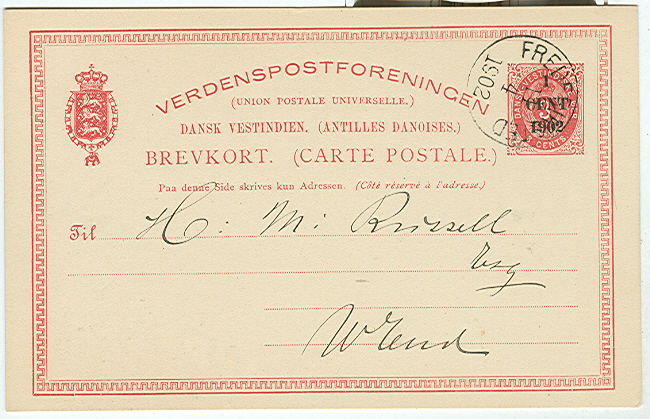 VERDENSPOSTFORENINGEN
(UNION POSTALE UNIVERSELLE.)
DANSK VESTINDIEN. (ANTILLES DANOISES.)
BREVKORT. (CARTE POSTALE.)
Paa denne Side skrives kun Adressen. (Côté réservé à l'adresse.)
1
CENT
1902
CENTS
1902
4
Til H: M: Russell
Esq
W End